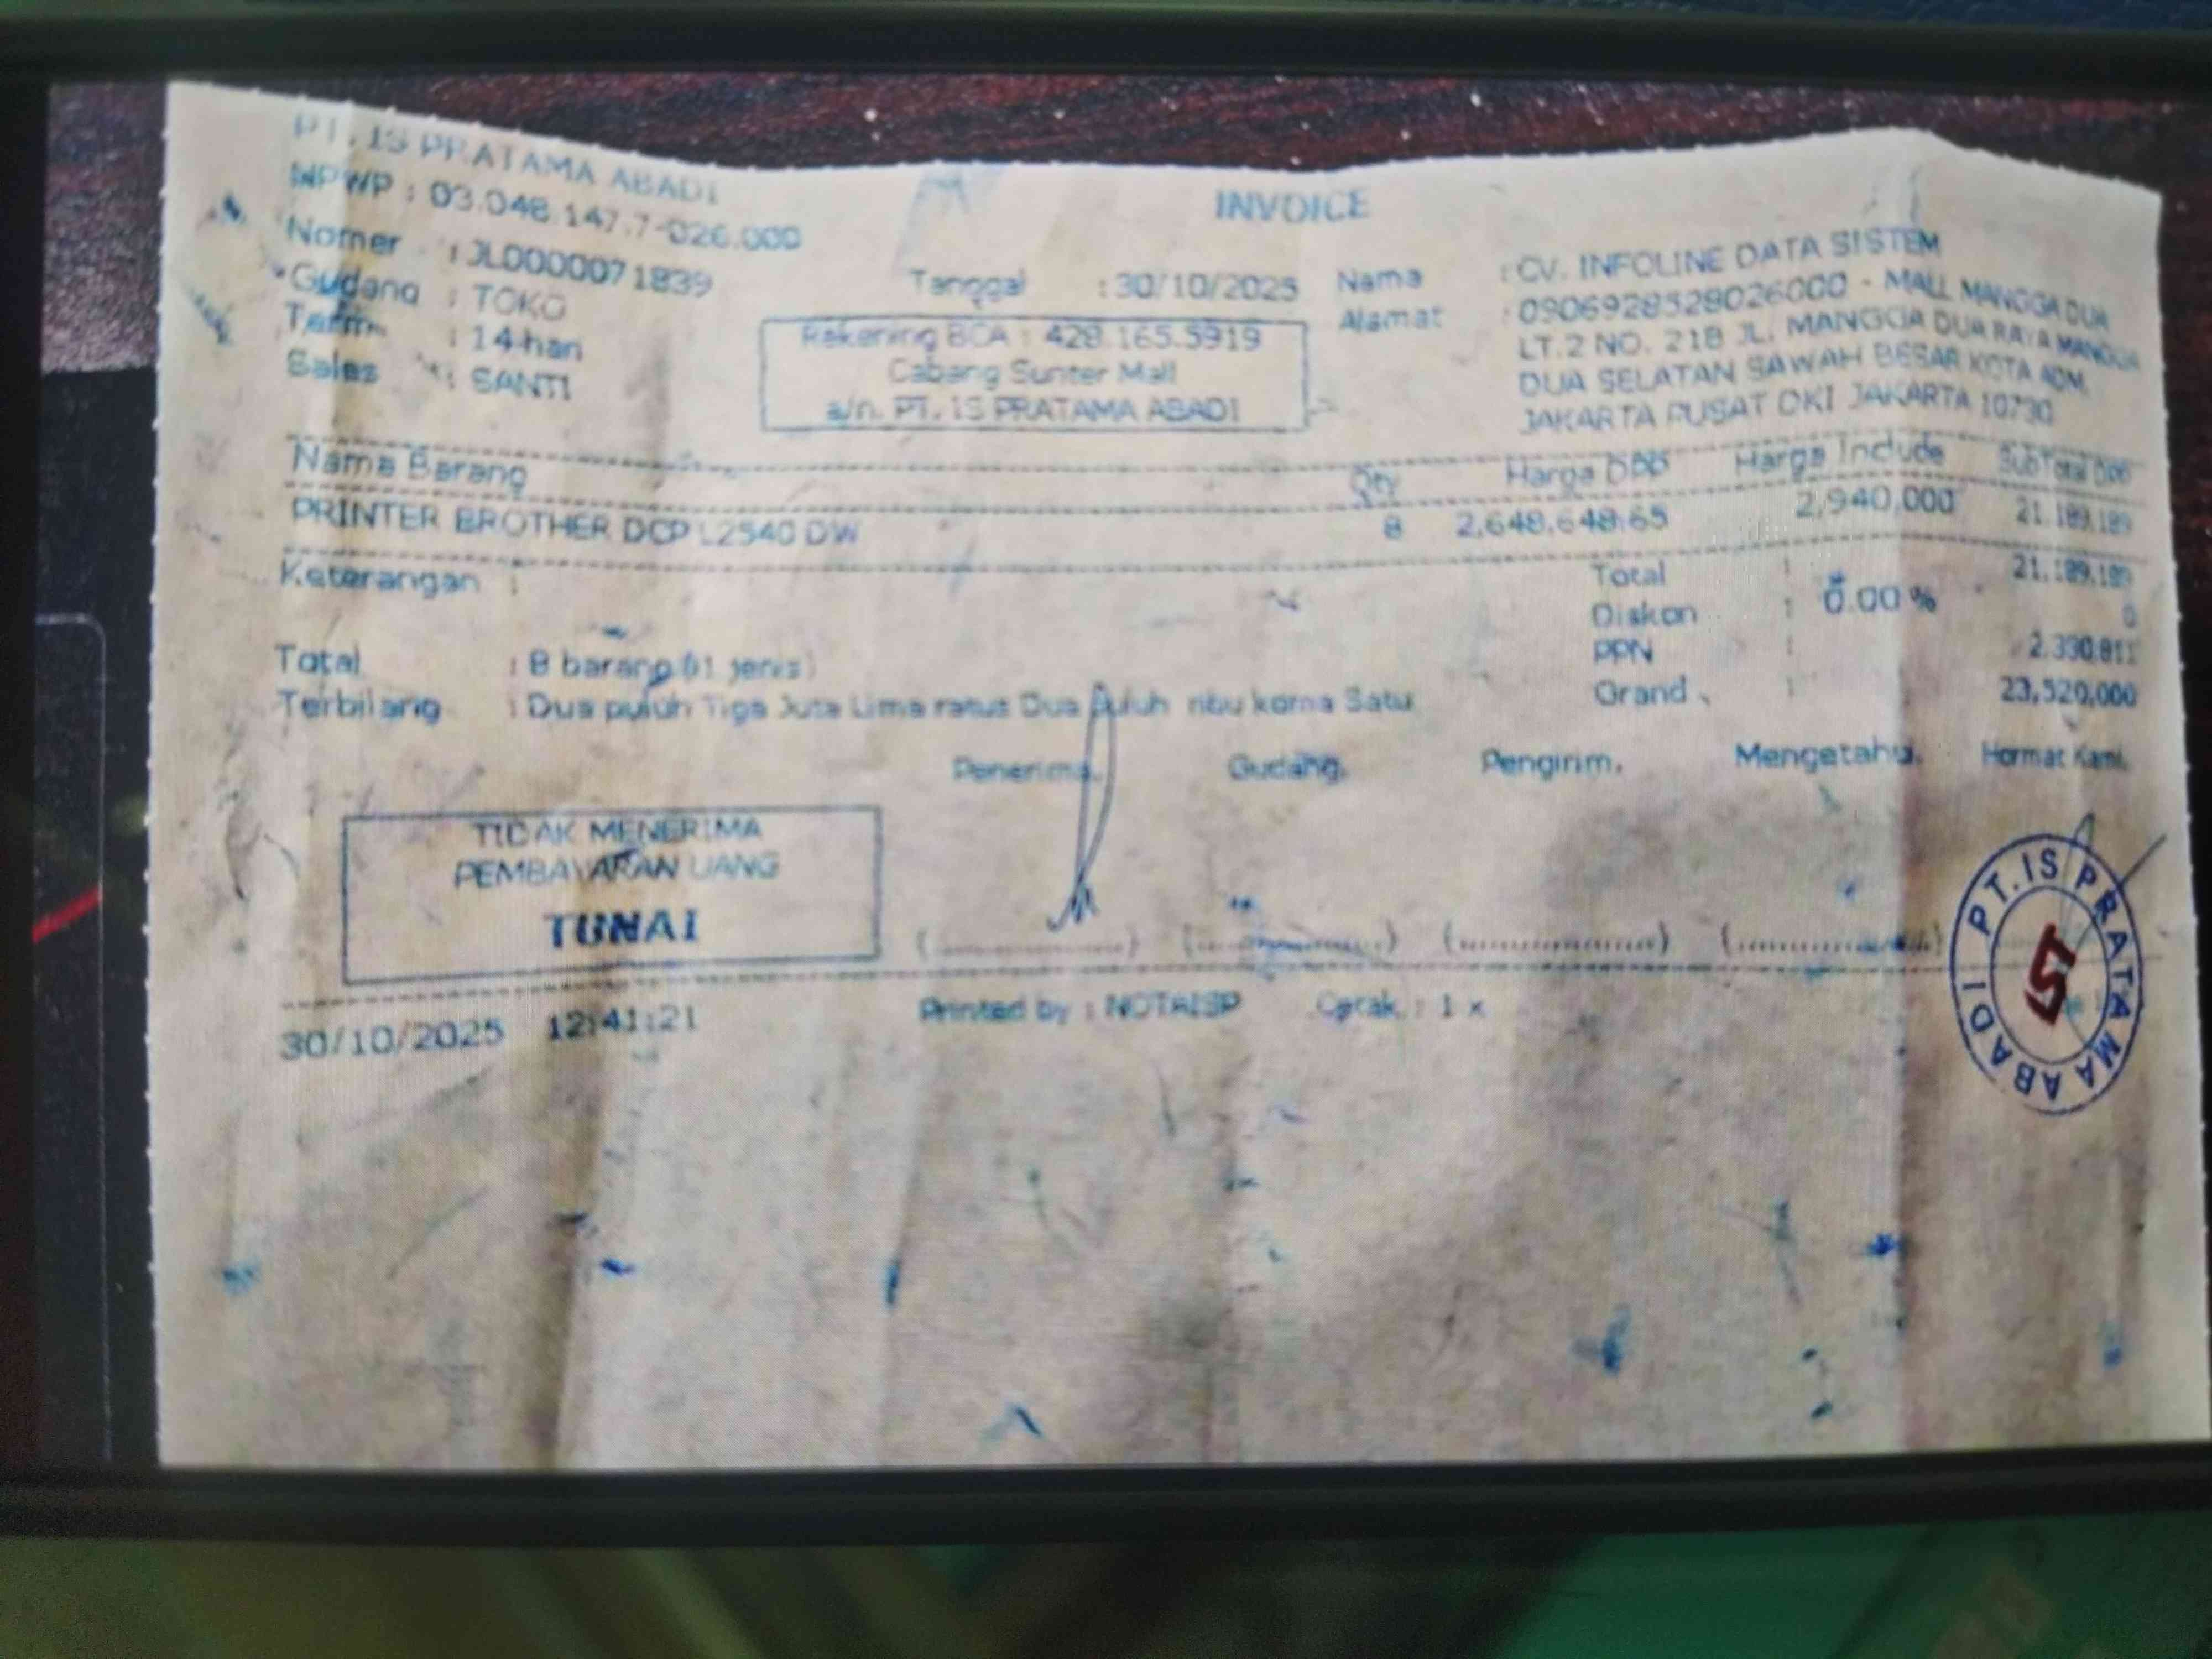 PT. IS PRATAMA ABADI
NPWP : 03.048.147.7-026.000
INVOICE
Nomer : JL0000071839
Gudang : TOKO
Term : 14 hari
Sales : SANTI
Tanggal : 30/10/2025
Rekening BCA : 428.165.5919
Cabang Sunter Mall
a/n. PT. IS PRATAMA ABADI
Nama : CV. INFOLINE DATA SISTEM
Alamat : 0906928528026000 - MALL MANGGA DUA
LT.2 NO. 21B JL. MANGGA DUA RAYA MANGGA
DUA SELATAN SAWAH BESAR KOTA ADM.
JAKARTA PUSAT DKI JAKARTA 10730
Nama Barang Qty Harga DPP Harga Include SubTotal DPP
PRINTER BROTHER DCP L2540 DW 8 2,648,648.65 2,940,000 21.189.189
Keterangan :
Total : 21.189.189
Diskon : 0.00 % 0
PPN : 2.330.811
Grand : 23,520,000
Total : 8 barang (1 jenis)
Terbilang : Dua puluh Tiga Juta Lima ratus Dua Puluh ribu koma Satu
Penerima, Gudang, Pengirim, Mengetahui, Hormat Kami,
TIDAK MENERIMA
PEMBAYARAN UANG
TUNAI
(....................) (....................) (....................) (....................)
PT. IS PRATAMA ABADI
30/10/2025 12:41:21 Printed by : NOTAISP Cetak : 1 x